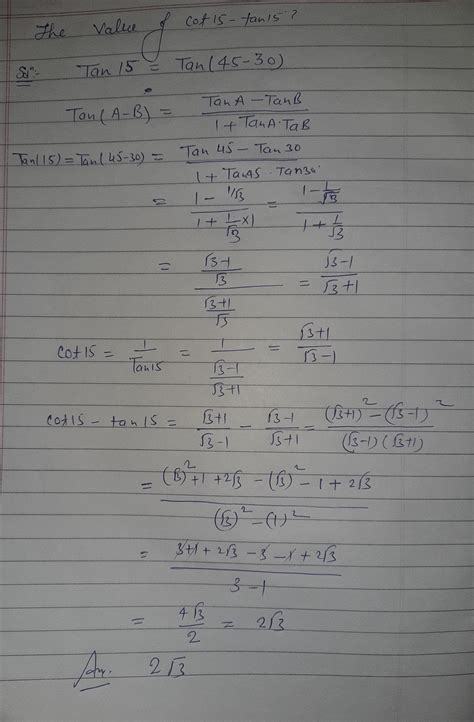 The Value of cot15 - tan15 ?
Solⁿ:- Tan 15 = Tan (45-30)
Tan (A-B) = (Tan A - Tan B) / (1 + Tan A · Ta B)
Tan(15) = Tan(45-30) = (Tan 45 - Tan 30) / (1 + Tan 45 · Tan 30)
= (1 - 1/√3) / (1 + 1/√3 × 1) = (1 - 1/√3) / (1 + 1/√3)
= ((√3-1)/√3) / ((√3+1)/√3) = (√3-1) / (√3+1)
cot 15 = 1 / Tan15 = 1 / ((√3-1)/(√3+1)) = (√3+1) / (√3-1)
cot15 - tan 15 = (√3+1)/(√3-1) - (√3-1)/(√3+1) = ((√3+1)² - (√3-1)²) / ((√3-1)(√3+1))
= ((√3)² + 1 + 2√3 - (√3)² - 1 + 2√3) / ((√3)² - (1)²)
= (3+1 + 2√3 - 3 - 1 + 2√3) / (3-1)
= 4√3 / 2 = 2√3
Ans. 2√3